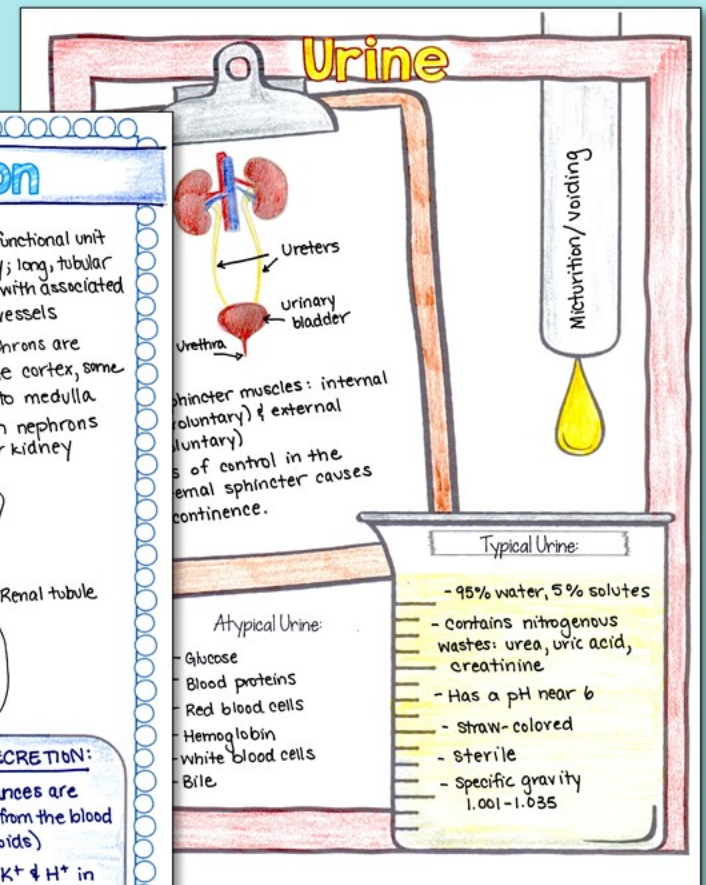 Urine
Micturition/voiding
Ureters
urinary
bladder
urethra
sphincter muscles: internal
voluntary) & external
luntary)
of control in the
ernal sphincter causes
continence.
Typical Urine:
- 95% water, 5% solutes
- contains nitrogenous
wastes: urea, uric acid,
creatinine
- Has a pH near 6
- straw-colored
- sterile
- Specific gravity
1.001-1.035
Atypical Urine:
- Glucose
- Blood proteins
- Red blood cells
- Hemoglobin
- White blood cells
- Bile
on
functional unit
; long, tubular
with associated
vessels
hrons are
e cortex, some
to medulla
nephrons
r kidney
Renal tubule
ECRETION:
nces are
from the blood
oids)
K+ & H+ in